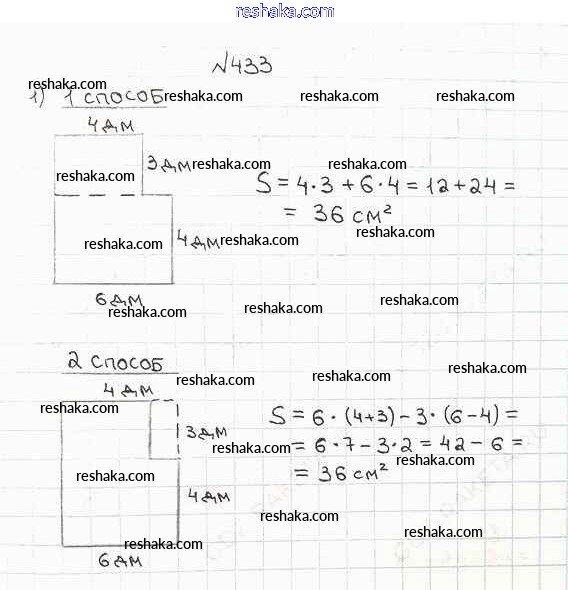 reshaka.com
№433
reshaka.com
1) 1 способ reshaka.com reshaka.com reshaka.com
4 дм
3 дм reshaka.com reshaka.com
reshaka.com
S = 4·3 + 6·4 = 12 + 24 =
= 36 см²
reshaka.com
reshaka.com 4 дм reshaka.com
6 дм reshaka.com reshaka.com
reshaka.com
2 способ reshaka.com reshaka.com
4 дм
reshaka.com
S = 6·(4+3) – 3·(6–4) =
3 дм
reshaka.com
= 6·7 – 3·2 = 42 – 6 =
reshaka.com
= 36 см²
reshaka.com
4 дм
reshaka.com
reshaka.com
reshaka.com
6 дм